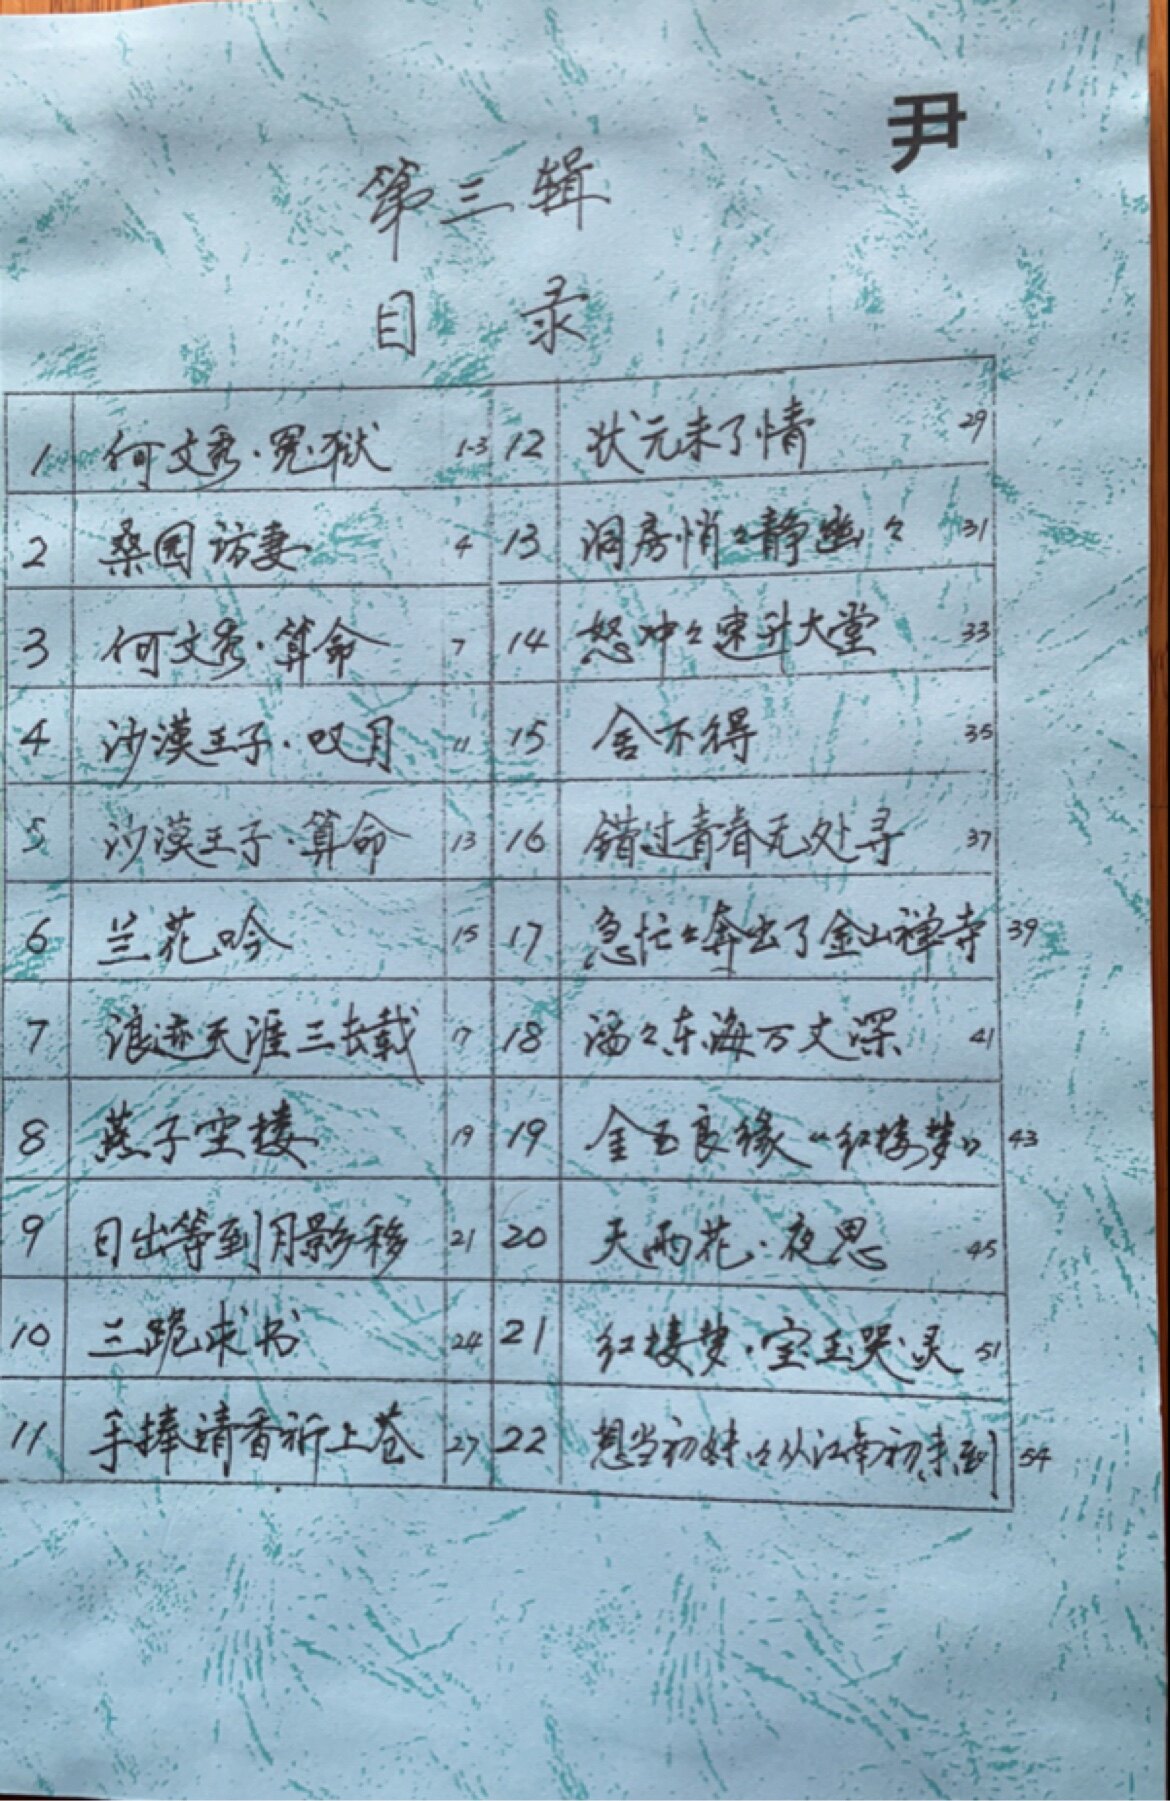 尹
第三辑
目录
1 何文秀·冤狱 1-3
2 桑园访妻 4
3 何文秀·算命 7
4 沙漠王子·叹月 11
5 沙漠王子·算命 13
6 兰花吟 15
7 浪迹天涯三长载 17
8 燕子空楼 19
9 日出等到月影移 21
10 三跪求书 24
11 手捧清香祈上苍 27
12 状元未了情 29
13 洞房悄々静幽々 31
14 怒冲々速升大堂 33
15 舍不得 35
16 错过青春无处寻 37
17 急忙々奔出了金山禅寺 39
18 滔々东海万丈深 41
19 金玉良缘“红楼梦” 43
20 天雨花·夜思 45
21 红楼梦·宝玉哭灵 51
22 想当初妹々从江南初来到 54